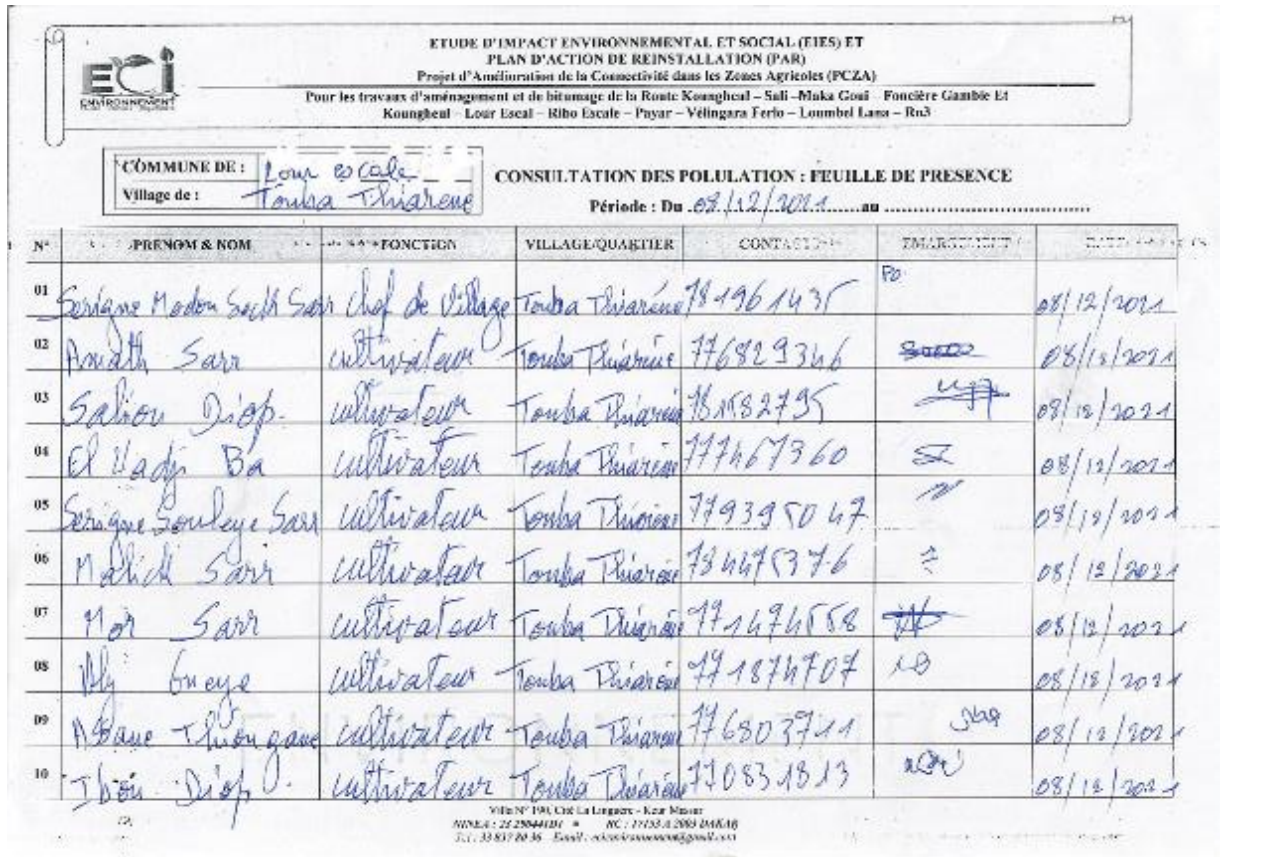 ECI
ENVIRONNEMENT
ETUDE D'IMPACT ENVIRONNEMENTAL ET SOCIAL (EIES) ET
PLAN D'ACTION DE REINSTALLATION (PAR)
Projet d'Amélioration de la Connectivité dans les Zones Agricoles (PCZA)
Pour les travaux d'aménagement et de bitumage de la Route Koungheul – Sali –Maka Goui – Foncière Gambie Et
Koungheul – Lour Escal – Ribo Escale – Payar – Vélingara Ferlo – Loumbel Lana – Rn3
COMMUNE DE : Lour escale
Village de : Touba Thiarene
CONSULTATION DES POLULATION : FEUILLE DE PRESENCE
Période : Du 08/12/2021 au
N° PRENOM & NOM FONCTION VILLAGE/QUARTIER CONTACT EMARGEMENT
01 Serigne Modou Seck Sarr Chef de Village Touba Thiaréne 781961435 Po 08/12/2021
02 Amath Sarr cultivateur Touba Thiaréne 776829346 08/12/2021
03 Saliou Diop. cultivateur Touba Thiaréne 08/12/2021
04 El Hadji Ba cultivateur Touba Thiaréne 777467360 08/12/2021
05 Serigne Souleye Sarr cultivateur Touba Thiaréne 779395047 08/12/2021
06 Malick Sarr cultivateur Touba Thiaréne 784475376 08/12/2021
07 Mor Sarr cultivateur Touba Thiaréne 771474558 08/12/2021
08 Aly Gueye cultivateur Touba Thiaréne 771874707 08/12/2021
09 Assane Thiongane cultivateur Touba Thiaréne 776803711 08/12/2021
10 Ibou Diop. cultivateur Touba Thiaréne 770831813 08/12/2021
Villa N° 190, Cité La Linguère - Keur Massar
NINEA : RC : DAKAR
Tel : 33 837 80 36 - Email :